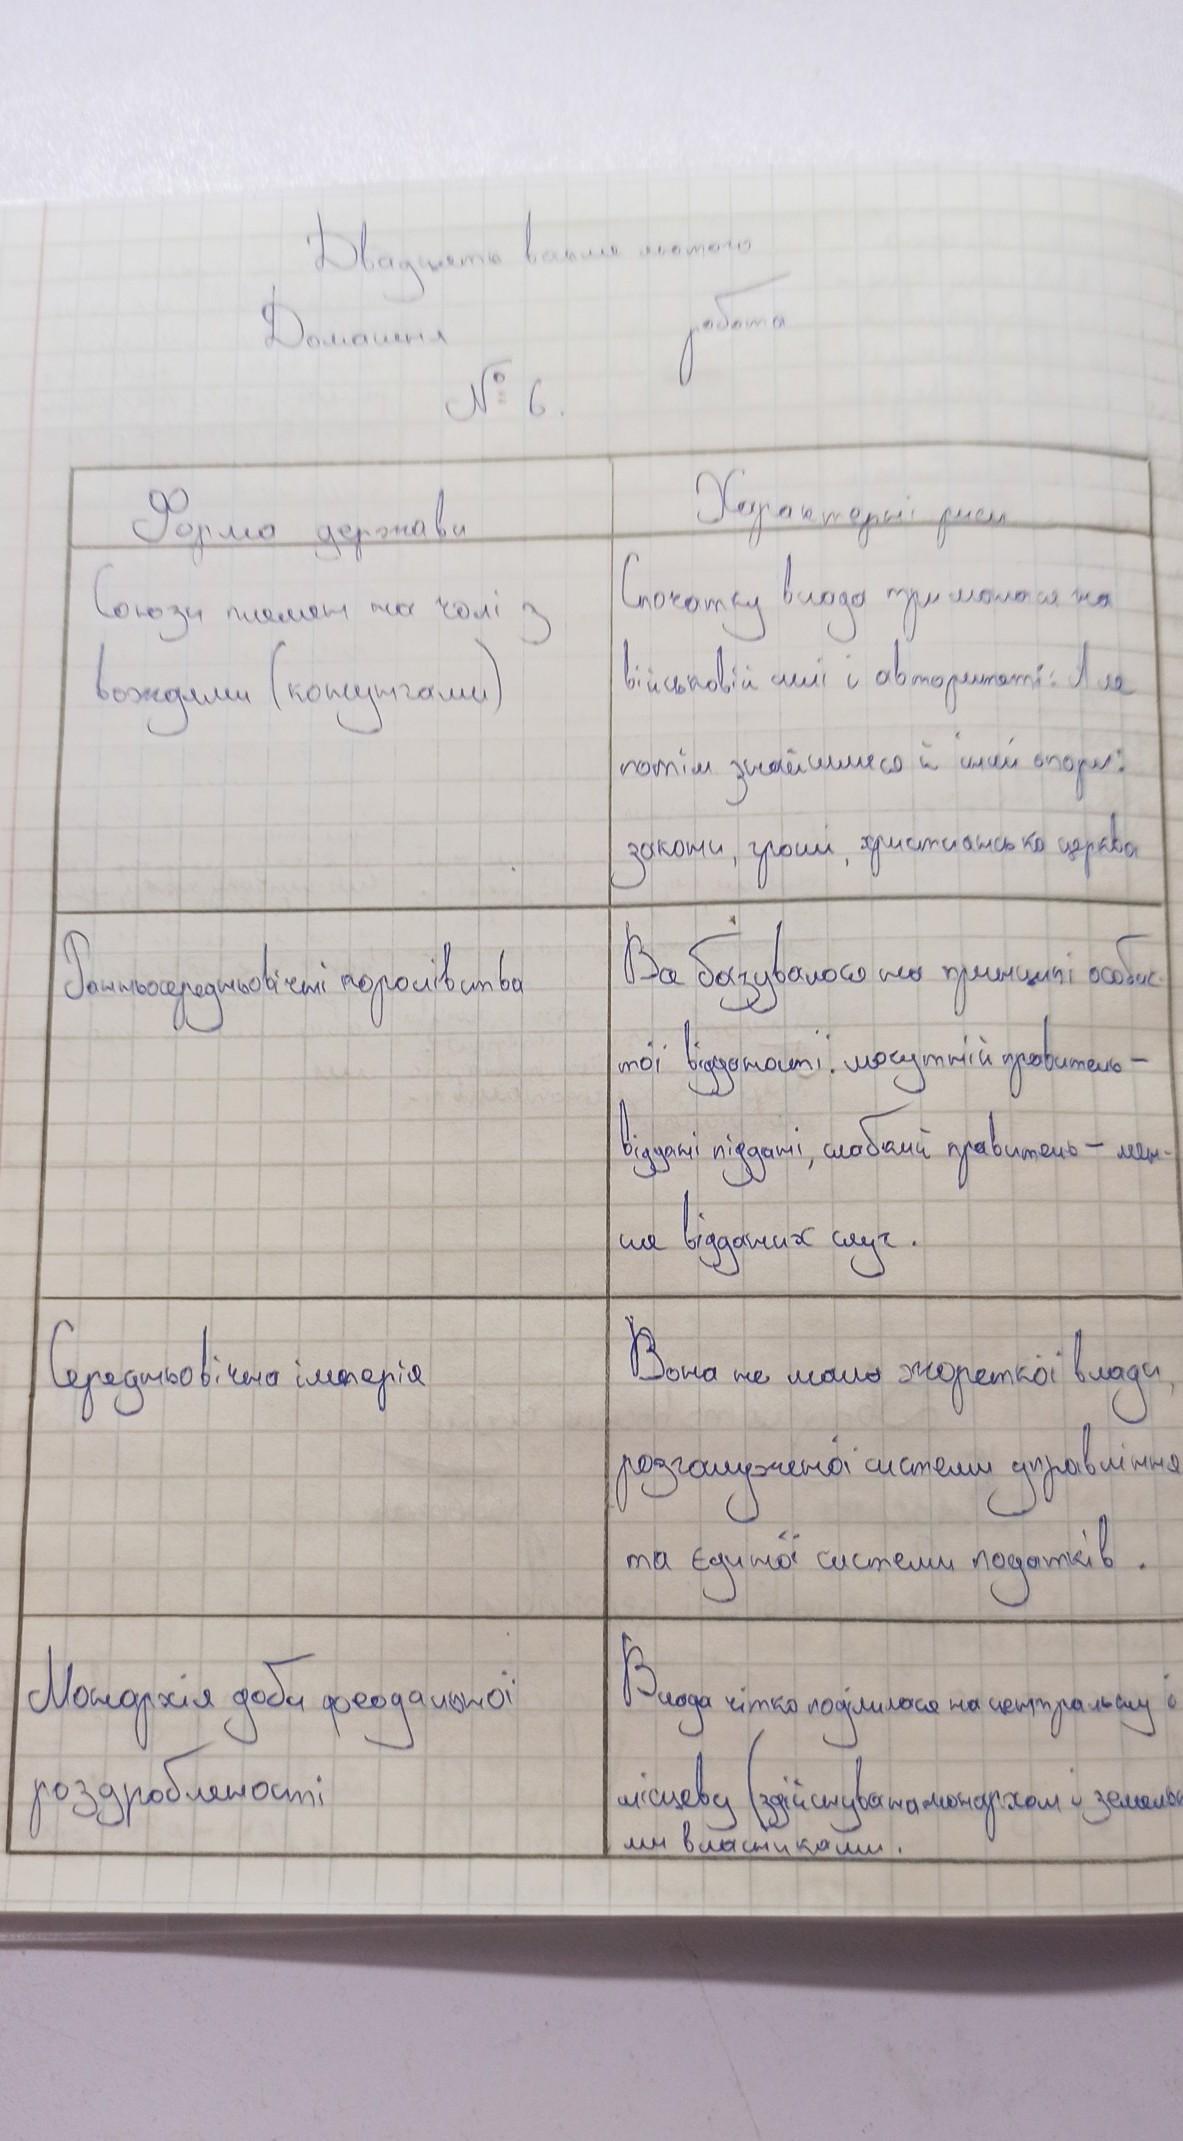 Двадцять восьме лютого
Домашня робота
№ 6.
Форма держави
Характерні риси
Союзи племен на чолі з
вождями (конунгами)
Спочатку влада трималася на
військовій силі і авторитеті. Але
потім знайшлися й інші опори:
закони, гроші, християнська церква
Ранньосередньовічні королівства
Все базувалося на принципі особис-
тої відданості: могутній правитель –
віддані піддані, слабкий правитель – мен-
ше відданих слуг.
Середньовічна імперія
Вона не мала жорсткої влади,
розгалуженої системи управління
та єдиної системи податків.
Монархія доби феодальної
роздробленості
Влада чітко поділилася на центральну і
місцеву (здійснувана монархом і земельн
ми власниками.